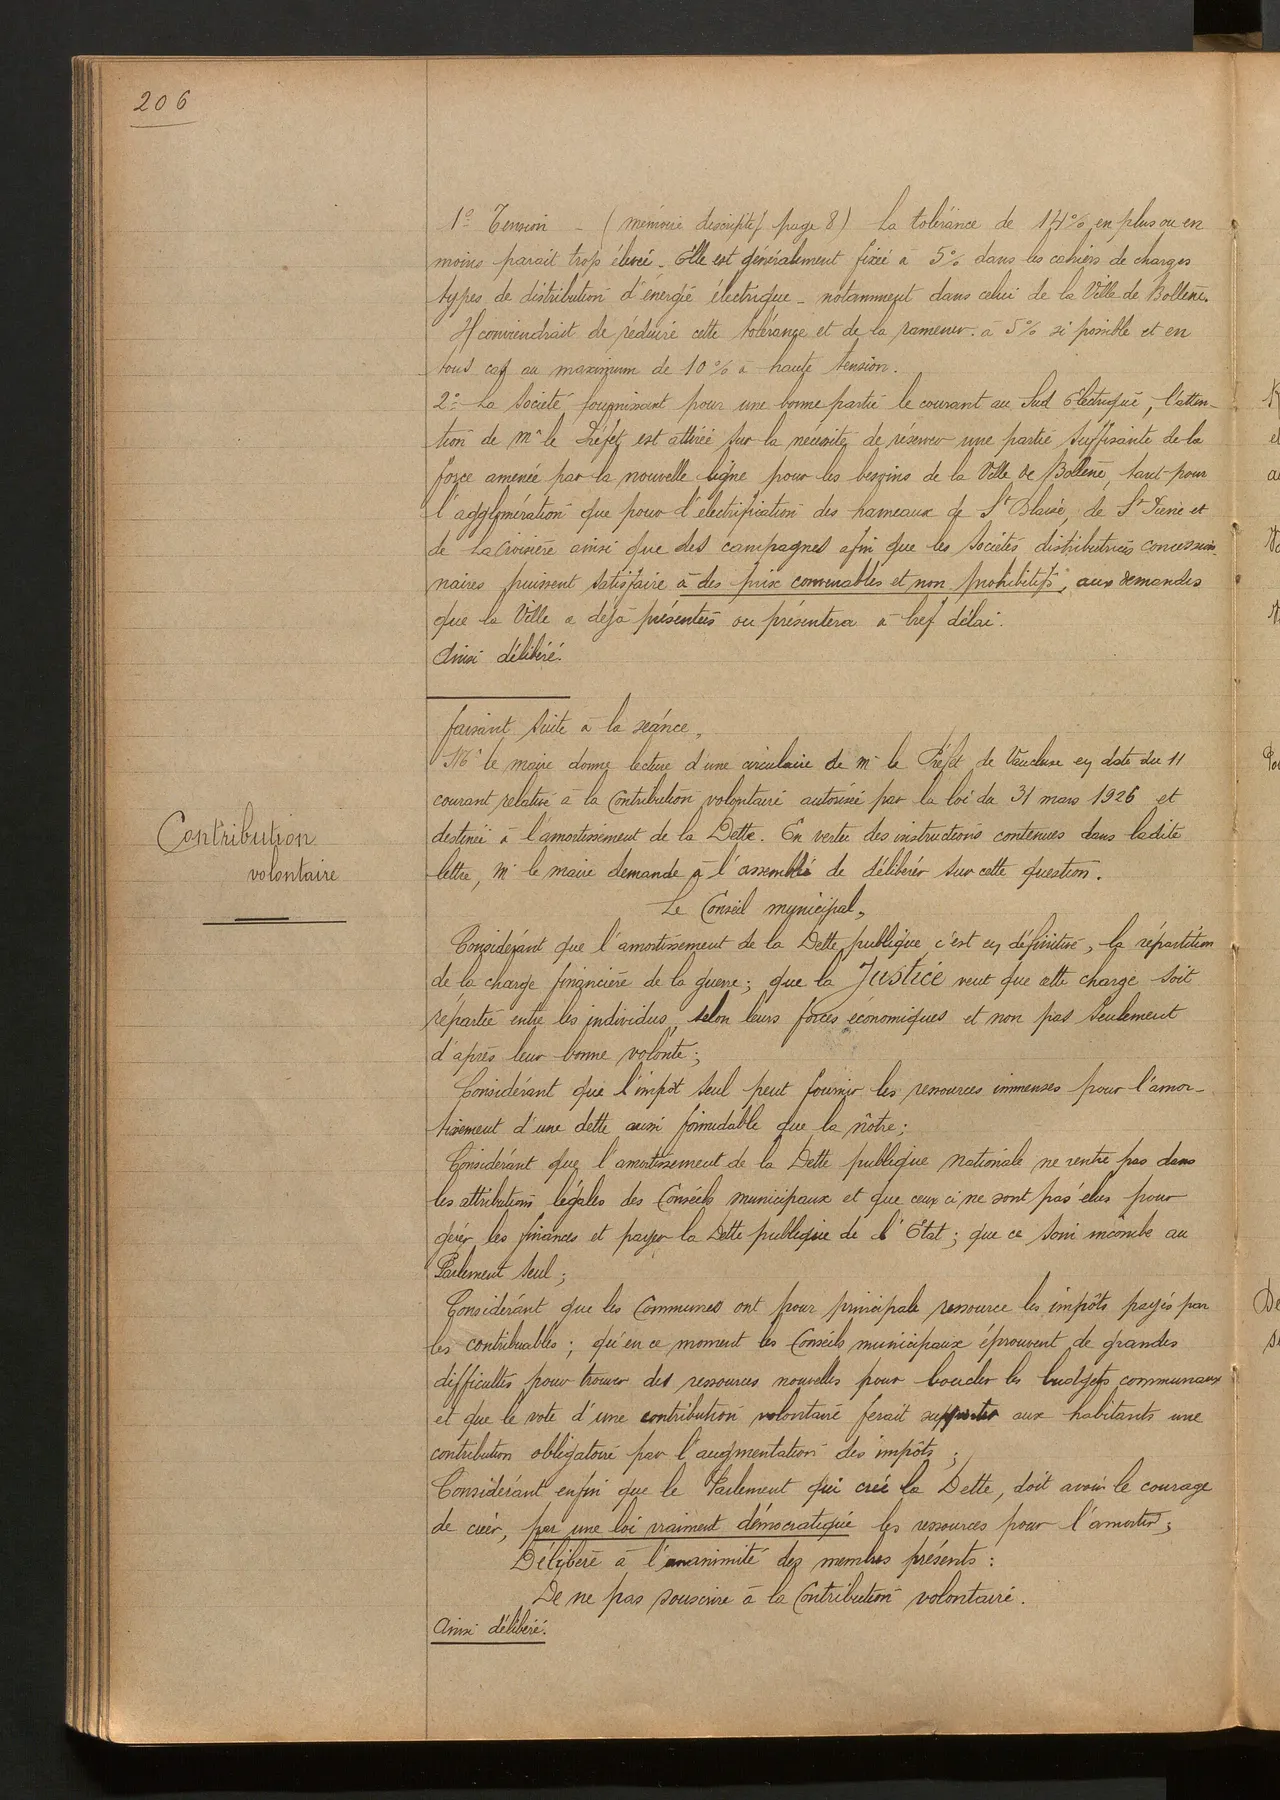 206
1º Tension - (mémoire descriptif page 8) La tolérance de 14% en plus ou en
moins parait trop élevée - Elle est généralement fixée à 5% dans les cahiers de charges
types de distribution d'énergie électrique - notamment dans celui de la Ville de Bollène.
Il conviendrait de réduire cette tolérance et de la ramener à 5% si possible et en
tous cas au maximum de 10% à haute tension.
2º La Société fournissant pour une bonne partie le courant au Sud Electrique, l'atten-
tion de Mr le Préfet est attirée sur la nécessité de réserver une partie suffisante de la
force amenée par la nouvelle ligne pour les besoins de la Ville de Bollène, tant pour
l'agglomération que pour l'électrification des hameaux de St Blaise, de St Pierre et
de La Croisière ainsi que des campagnes afin que les Sociétés distributrices concession-
naires puissent satisfaire à des prix convenables et non prohibitifs, aux demandes
que la Ville a déjà présentées ou présentera à bref délai.
Ainsi délibéré.
faisant suite à la séance,
Mr le maire donne lecture d'une circulaire de Mr le Préfet de Vaucluse en date du 11
courant relative à la Contribution volontaire autorisée par la loi du 31 mars 1926 et
destinée à l'amortissement de la Dette. En vertu des instructions contenues dans ladite
lettre, Mr le maire demande à l'assemblée de délibérer sur cette question.
Contribution
volontaire
Le Conseil municipal,
Considérant que l'amortissement de la Dette publique c'est en définitive, la répartition
de la charge financière de la guerre; que la Justice veut que cette charge soit
répartie entre les individus selon leurs forces économiques et non pas seulement
d'après leur bonne volonté;
Considérant que l'impôt seul peut fournir les ressources immenses pour l'amor-
tissement d'une dette aussi formidable que la nôtre;
Considérant que l'amortissement de la Dette publique nationale ne rentre pas dans
les attributions légales des Conseils municipaux et que ceux ci ne sont pas élus pour
gérer les finances et payer la Dette publique de l'Etat; que ce soin incombe au
Parlement seul;
Considérant que les Communes ont pour principale ressource les impôts payés par
les contribuables; qu'en ce moment les Conseils municipaux éprouvent de grandes
difficultés pour trouver des ressources nouvelles pour boucler les budgets communaux
et que le vote d'une contribution volontaire ferait supporter aux habitants une
contribution obligatoire par l'augmentation des impôts;
Considérant enfin que le Parlement qui créé la Dette, doit avoir le courage
de créer, par une loi vraiment démocratique les ressources pour l'amortir;
Délibère à l'unanimité des membres présents:
De ne pas souscrire à la Contribution volontaire.
Ainsi délibéré.